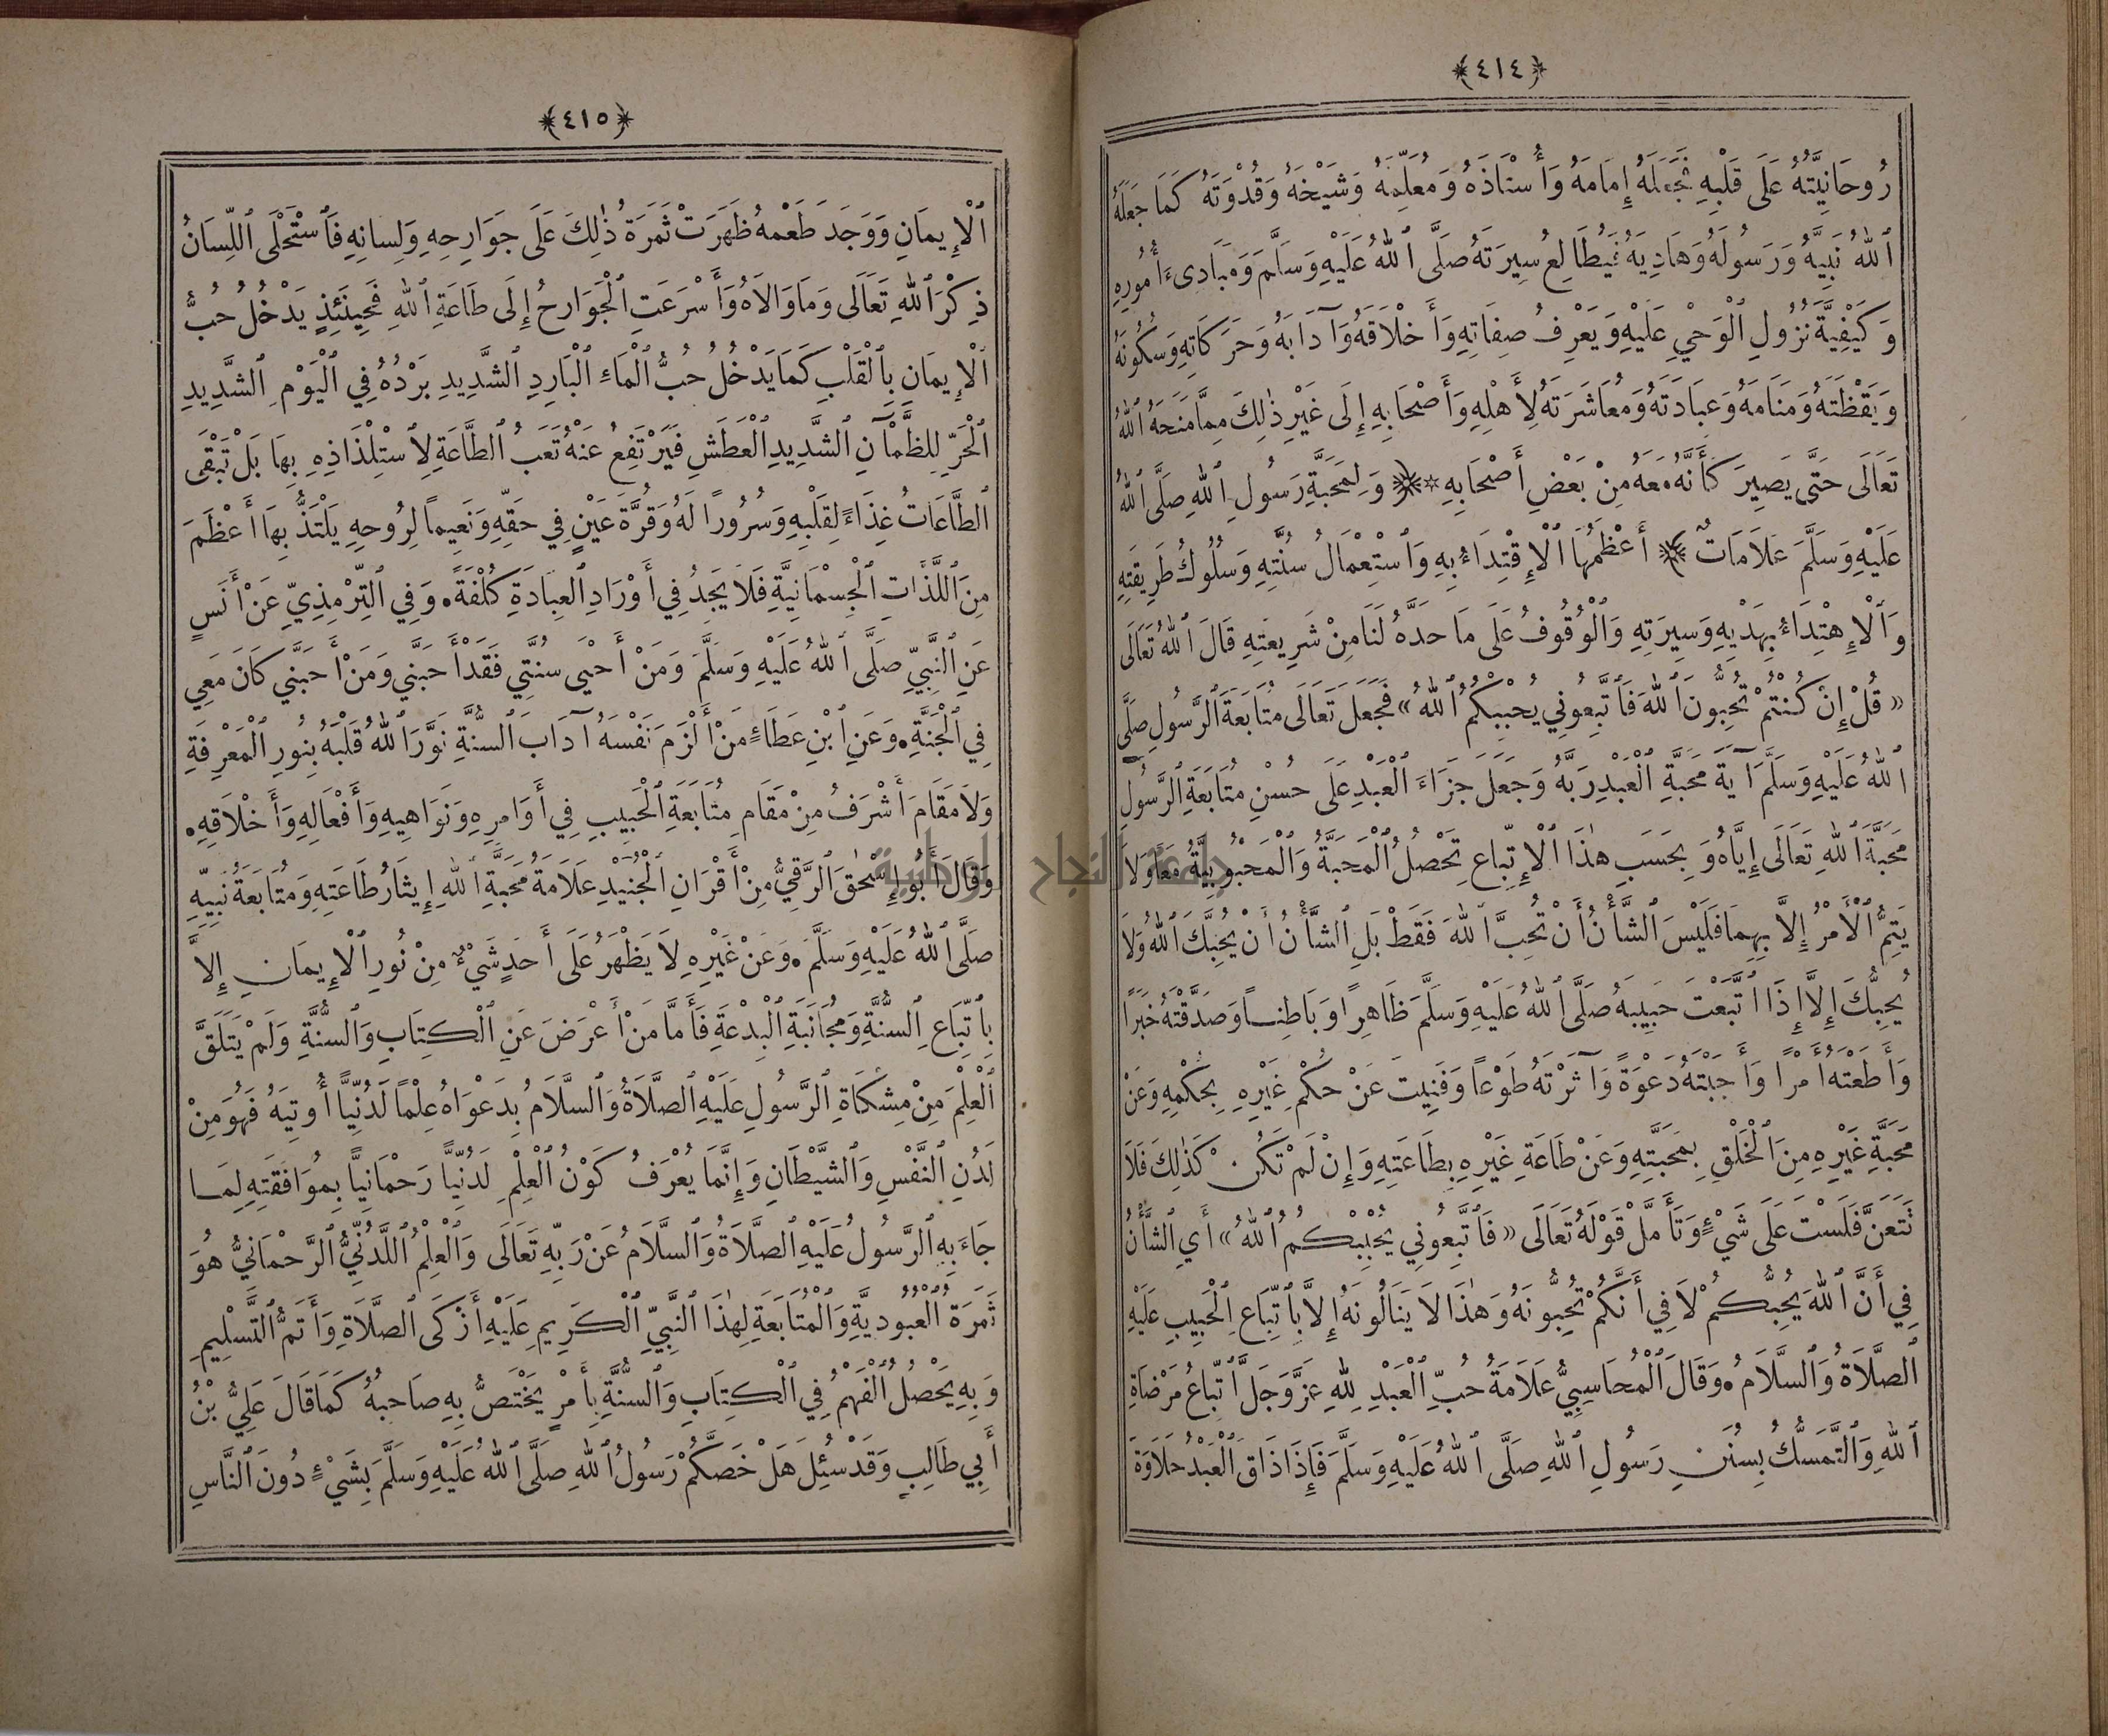 ﴿٤١٤﴾
رُوحَانِيَّتُهُ عَلَى قَلْبِهِ فَجَعَلَهُ إِمَامَهُ وَأُسْتَاذَهُ وَمُعَلِّمَهُ وَشَيْخَهُ وَقُدْوَتَهُ كَمَا جَعَلَهُ
ٱللهُ نَبِيَّهُ وَرَسُولَهُ وَهَادِيَهُ فَيُطَالِعُ سِيرَتَهُ صَلَّى ٱللهُ عَلَيْهِ وَسَلَّمَ وَمَبَادِىءَ أُمُورِهِ
وَكَيْفِيَّةَ نُزُولِ ٱلْوَحْيِ عَلَيْهِ وَيَعْرِفُ صِفَاتِهِ وَأَخْلَاقَهُ وَآدَابَهُ وَحَرَكَاتِهِ وَسُكُونَهُ
وَيَقْظَتَهُ وَمَنَامَهُ وَعِبَادَتَهُ وَمُعَاشَرَتَهُ لِأَهْلِهِ وَأَصْحَابِهِ إِلَى غَيْرِ ذٰلِكَ مِمَّا مَنَحَهُ ٱللهُ
تَعَالَى حَتَّى يَصِيرَ كَأَنَّهُ مَعَهُ مِنْ بَعْضِ أَصْحَابِهِ * ﴿ وَلِمَحَبَّةِ رَسُولِ ٱللهِ صَلَّى ٱللهُ
عَلَيْهِ وَسَلَّمَ عَلَامَاتٌ ﴾ أَعْظَمُهَا ٱلْإِقْتِدَاءُ بِهِ وَٱسْتِعْمَالُ سُنَّتِهِ وَسُلُوكُ طَرِيقَتِهِ
وَٱلْإِهْتِدَاءُ بِهَدْيِهِ وَسِيرَتِهِ وَٱلْوُقُوفُ عَلَى مَا حَدَّهُ لَنَا مِنْ شَرِيعَتِهِ قَالَ ٱللهُ تَعَالَى
« قُلْ إِنْ كُنْتُمْ تُحِبُّونَ ٱللهَ فَٱتَّبِعُونِي يُحْبِبْكُمُ ٱللهُ » فَجَعَلَ تَعَالَى مُتَابَعَةَ ٱلرَّسُولِ صَلَّى
ٱللهُ عَلَيْهِ وَسَلَّمَ آيَةَ مَحَبَّةِ ٱلْعَبْدِ رَبَّهُ وَجَعَلَ جَزَاءَ ٱلْعَبْدِ عَلَى حُسْنِ مُتَابَعَةِ ٱلرَّسُولِ
مَحَبَّةَ ٱللهِ تَعَالَى إِيَّاهُ وَبِحَسَبِ هٰذَا ٱلْإِتِّبَاعِ تَحْصُلُ ٱلْمَحَبَّةُ وَٱلْمَحْبُوبِيَّةُ مَعًا وَلَا
يَتِمُّ ٱلْأَمْرُ إِلَّا بِهِمَا فَلَيْسَ ٱلشَّأْنُ أَنْ تُحِبَّ ٱللهَ فَقَطْ بَلِ ٱلشَّأْنُ أَنْ يُحِبَّكَ ٱللهُ وَلَا
يُحِبُّكَ إِلَّا إِذَا ٱتَّبَعْتَ حَبِيبَهُ صَلَّى ٱللهُ عَلَيْهِ وَسَلَّمَ ظَاهِرًا وَبَاطِنًا وَصَدَّقْتَهُ خَبَرًا
وَأَطَعْتَهُ أَمْرًا وَأَجَبْتَهُ دَعْوَةً وَآثَرْتَهُ طَوْعًا وَفَنِيتَ عَنْ حُكْمِ غَيْرِهِ بِحُكْمِهِ وَعَنْ
مَحَبَّةِ غَيْرِهِ مِنَ ٱلْخَلْقِ بِمَحَبَّتِهِ وَعَنْ طَاعَةِ غَيْرِهِ بِطَاعَتِهِ وَإِنْ لَمْ تَكُنْ كَذٰلِكَ فَلَا
تَتَعَنَّ فَلَسْتَ عَلَى شَيْءٍ وَتَأَمَّلْ قَوْلَهُ تَعَالَى « فَٱتَّبِعُونِي يُحْبِبْكُمُ ٱللهُ » أَيِ ٱلشَّأْنُ
فِي أَنَّ ٱللهَ يُحِبُّكُمْ لَا فِي أَنَّكُمْ تُحِبُّونَهُ وَهٰذَا لَا يَنَالُونَهُ إِلَّا بِٱتِّبَاعِ ٱلْحَبِيبِ عَلَيْهِ
ٱلصَّلَاةُ وَٱلسَّلَامُ • وَقَالَ ٱلْمُحَاسِبِيُّ عَلَامَةُ حُبِّ ٱلْعَبْدِ لِلهِ عَزَّ وَجَلَّ ٱتِّبَاعُ مَرْضَاةِ
ٱللهِ وَٱلتَّمَسُّكُ بِسُنَنِ رَسُولِ ٱللهِ صَلَّى ٱللهُ عَلَيْهِ وَسَلَّمَ فَإِذَا ذَاقَ ٱلْعَبْدُ حَلَاوَةَ
﴿٤١٥﴾
ٱلْإِيمَانِ وَوَجَدَ طَعْمَهُ ظَهَرَتْ ثَمَرَةُ ذٰلِكَ عَلَى جَوَارِحِهِ وَلِسَانِهِ فَٱسْتَحْلَى ٱللِّسَانُ
ذِكْرَ ٱللهِ تَعَالَى وَمَا وَالَاهُ وَأَسْرَعَتِ ٱلْجَوَارِحُ إِلَى طَاعَةِ ٱللهِ فَحِينَئِذٍ يَدْخُلُ حُبُّ
ٱلْإِيمَانِ بِٱلْقَلْبِ كَمَا يَدْخُلُ حُبُّ ٱلْمَاءِ ٱلْبَارِدِ ٱلشَّدِيدِ بَرْدُهُ فِي ٱلْيَوْمِ ٱلشَّدِيدِ
ٱلْحَرِّ لِلظَّمْآنِ ٱلشَّدِيدِ ٱلْعَطَشِ فَيَرْتَفِعُ عَنْهُ تَعَبُ ٱلطَّاعَةِ لِٱسْتِلْذَاذِهِ بِهَا بَلْ تَبْقَى
ٱلطَّاعَاتُ غِذَاءً لِقَلْبِهِ وَسُرُورًا لَهُ وَقُرَّةَ عَيْنٍ فِي حَقِّهِ وَنَعِيمًا لِرُوحِهِ يَلْتَذُّ بِهَا أَعْظَمَ
مِنَ ٱللَّذَّاتِ ٱلْجِسْمَانِيَّةِ فَلَا يَجِدُ فِي أَوْرَادِ ٱلْعِبَادَةِ كُلْفَةً • وَفِي ٱلتِّرْمِذِيِّ عَنْ أَنَسٍ
عَنِ ٱلنَّبِيِّ صَلَّى ٱللهُ عَلَيْهِ وَسَلَّمَ وَمَنْ أَحْيَى سُنَّتِي فَقَدْ أَحَبَّنِي وَمَنْ أَحَبَّنِي كَانَ مَعِي
فِي ٱلْجَنَّةِ • وَعَنِ ٱبْنِ عَطَاءٍ مَنْ أَلْزَمَ نَفْسَهُ آدَابَ ٱلسُّنَّةِ نَوَّرَ ٱللهُ قَلْبَهُ بِنُورِ ٱلْمَعْرِفَةِ
وَلَا مَقَامَ أَشْرَفُ مِنْ مَقَامِ مُتَابَعَةِ ٱلْحَبِيبِ فِي أَوَامِرِهِ وَنَوَاهِيهِ وَأَفْعَالِهِ وَأَخْلَاقِهِ •
وَقَالَ أَبُو إِسْحٰقَ ٱلرَّقِّيُّ مِنْ أَقْرَانِ ٱلْجُنَيْدِ عَلَامَةُ مَحَبَّةِ ٱللهِ إِيثَارُ طَاعَتِهِ وَمُتَابَعَةُ نَبِيِّهِ
صَلَّى ٱللهُ عَلَيْهِ وَسَلَّمَ • وَعَنْ غَيْرِهِ لَا يَظْهَرُ عَلَى أَحَدٍ شَيْءٌ مِنْ نُورِ ٱلْإِيمَانِ إِلَّا
بِٱتِّبَاعِ ٱلسُّنَّةِ وَمُجَانَبَةِ ٱلْبِدْعَةِ فَأَمَّا مَنْ أَعْرَضَ عَنِ ٱلْكِتَابِ وَٱلسُّنَّةِ وَلَمْ يَتَلَقَّ
ٱلْعِلْمَ مِنْ مِشْكَاةِ ٱلرَّسُولِ عَلَيْهِ ٱلصَّلَاةُ وَٱلسَّلَامُ بِدَعْوَاهُ عِلْمًا لَدُنِّيًّا أُوتِيَهُ فَهُوَ مِنْ
لَدُنِ ٱلنَّفْسِ وَٱلشَّيْطَانِ وَإِنَّمَا يُعْرَفُ كَوْنُ ٱلْعِلْمِ لَدُنِّيًّا رَحْمَانِيًّا بِمُوَافَقَتِهِ لِمَا
جَاءَ بِهِ ٱلرَّسُولُ عَلَيْهِ ٱلصَّلَاةُ وَٱلسَّلَامُ عَنْ رَبِّهِ تَعَالَى وَٱلْعِلْمُ ٱللَّدُنِّيُّ ٱلرَّحْمَانِيُّ هُوَ
ثَمَرَةُ ٱلْعُبُودِيَّةِ وَٱلْمُتَابَعَةِ لِهٰذَا ٱلنَّبِيِّ ٱلْكَرِيمِ عَلَيْهِ أَزْكَى ٱلصَّلَاةِ وَأَتَمُّ ٱلتَّسْلِيمِ
وَبِهِ يَحْصُلُ ٱلْفَهْمُ فِي ٱلْكِتَابِ وَٱلسُّنَّةِ بِأَمْرٍ يَخْتَصُّ بِهِ صَاحِبُهُ كَمَا قَالَ عَلِيُّ بْنُ
أَبِي طَالِبٍ وَقَدْ سُئِلَ هَلْ خَصَّكُمْ رَسُولُ ٱللهِ صَلَّى ٱللهُ عَلَيْهِ وَسَلَّمَ بِشَيْءٍ دُونَ ٱلنَّاسِ
جامعة النجاح الوطنية